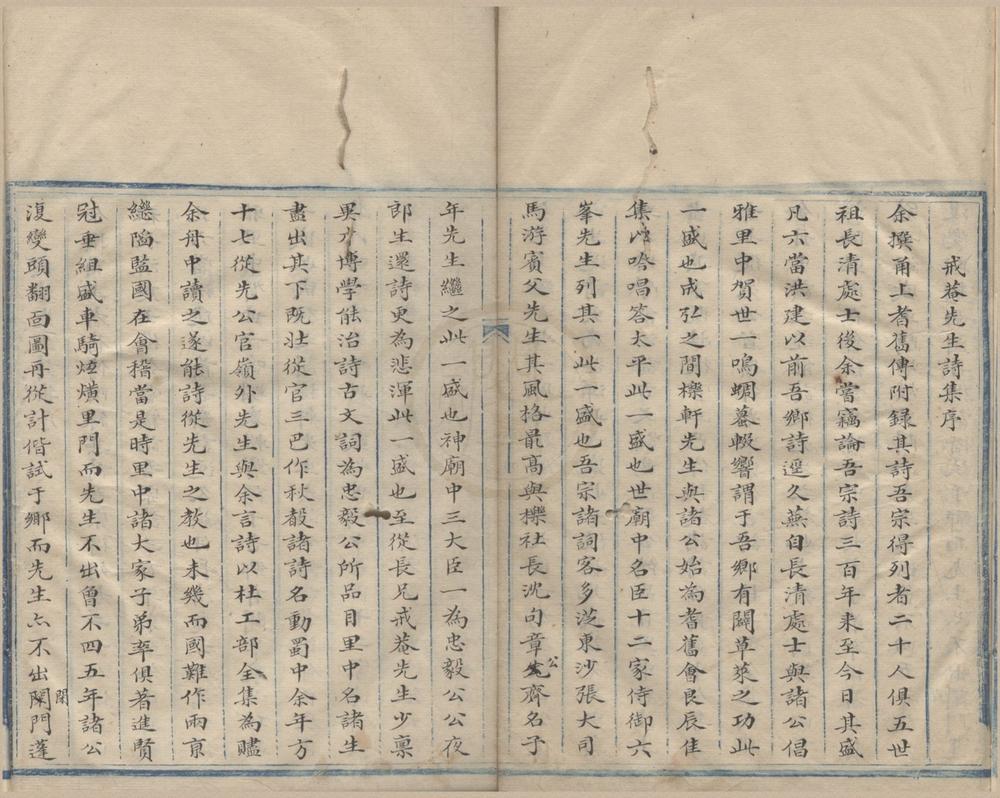 戒菴先生詩集序
余撰甬上耆舊傳附錄其詩吾宗得列者二十人俱五世
祖長清處士後余嘗竊論吾宗詩三百年來至今日其盛
凡六當洪建以前吾鄉詩逕久蕪自長清處士與諸公倡
雅里中賀世一鳴蜩蟇輟響謂于吾鄉有闢草萊之功此
一盛也成弘之間櫟軒先生與諸公始為耆舊會良辰佳
集以吟唱答太平此一盛也世廟中名臣十二家侍御六
峯先生列其一此一盛也吾宗諸詞客多從東沙張大司
馬游賓父先生其風格最高與櫟社長沈句章公齊名予
年先生繼之此一盛也神廟中三大臣一為忠毅公公夜
郎生還詩更為悲渾此一盛也至從長兄戒菴先生少禀
異才博學能治詩古文詞為忠毅公所品目里中名諸生
盡出其下既壯從官三巴作秋敲諸詩名動蜀中余年方
十七從先公官嶺外先生與余言詩以杜工部全集為贐
余舟中讀之遂能詩從先生之教也未幾而國難作兩京
繼陷監國在會稽當是時里中諸大家子弟率俱著進賢
冠垂組盛車騎炫爌里門而先生不出曾不四五年諸公
復變頭翻面圖再從計偕試于鄉而先生亦不出閑門蓬